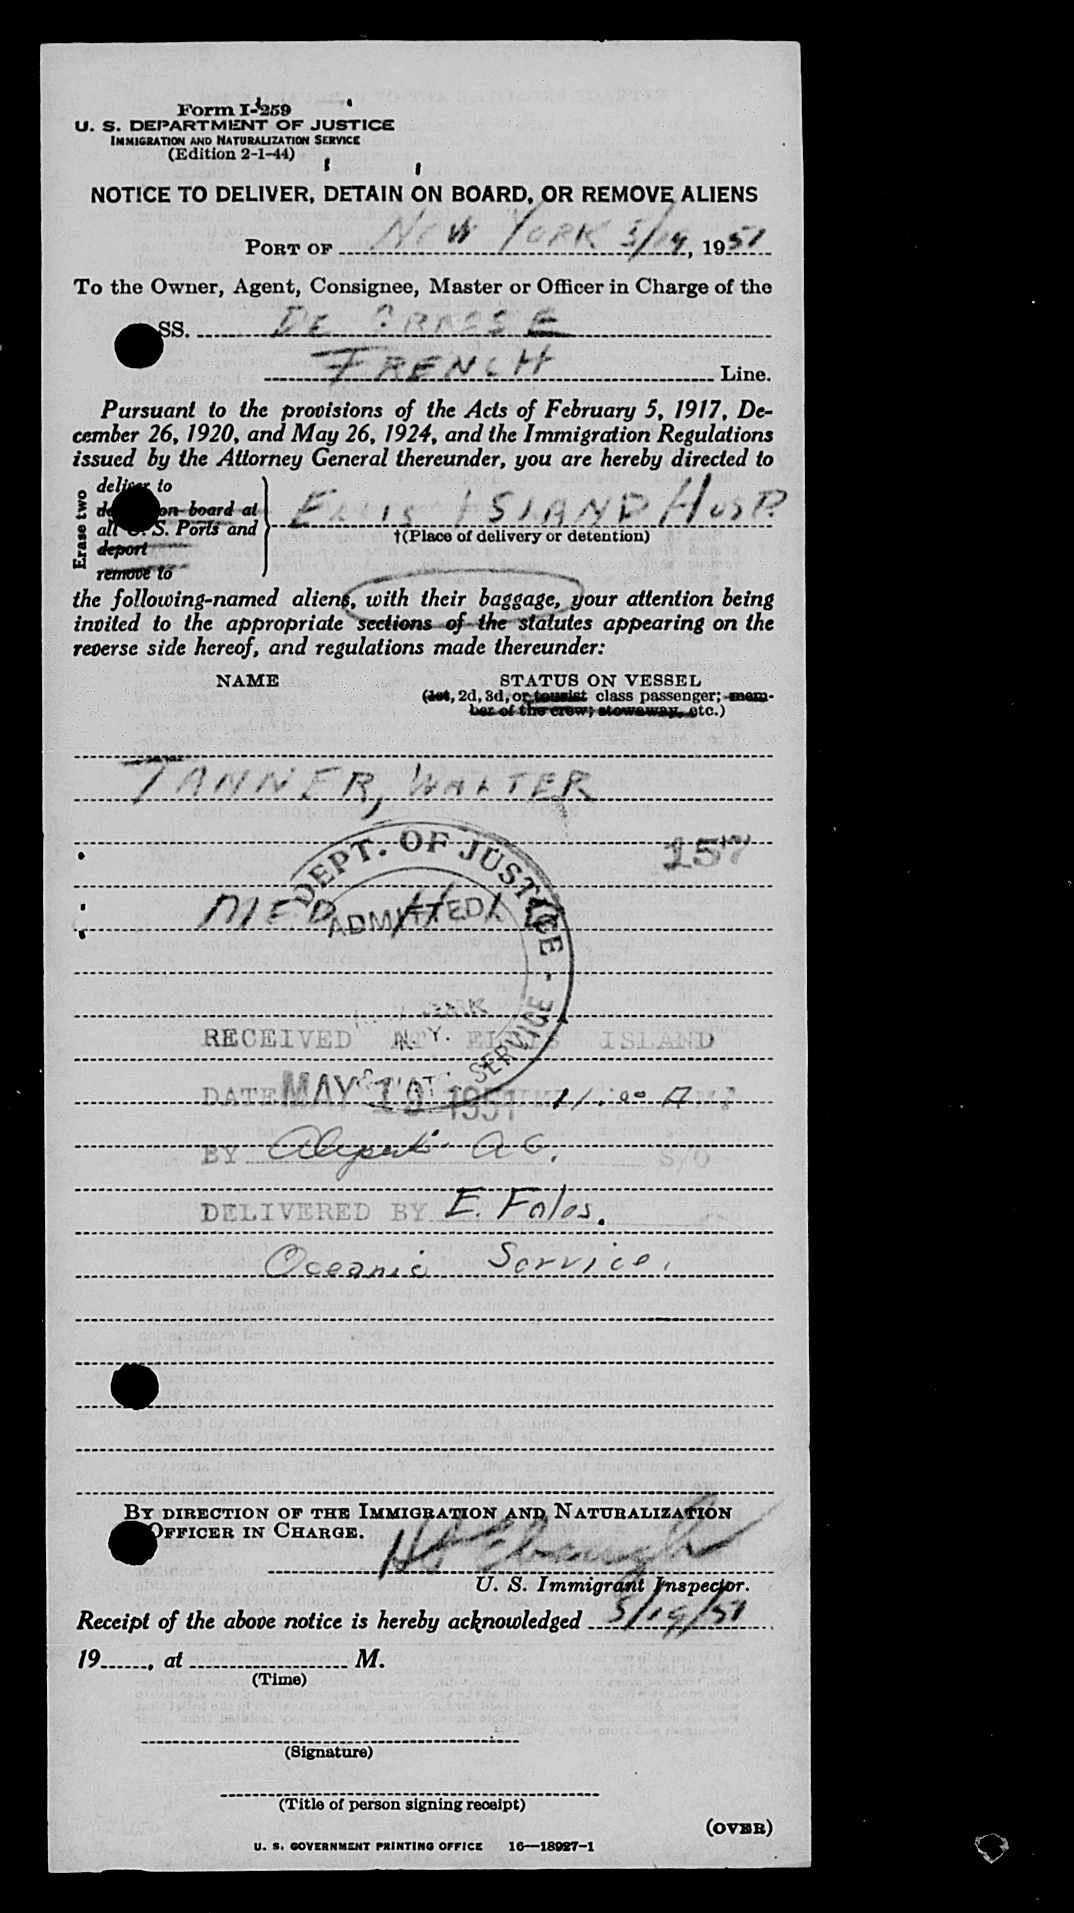 Form I-259
U. S. DEPARTMENT OF JUSTICE
IMMIGRATION AND NATURALIZATION SERVICE
(Edition 2-1-44)
NOTICE TO DELIVER, DETAIN ON BOARD, OR REMOVE ALIENS
PORT OF NEW YORK 5/19, 1951
To the Owner, Agent, Consignee, Master or Officer in Charge of the
SS. DE GRASSE
FRENCH Line.
Pursuant to the provisions of the Acts of February 5, 1917, De-
cember 26, 1920, and May 26, 1924, and the Immigration Regulations
issued by the Attorney General thereunder, you are hereby directed to
Erase two
deliver to
on board at
all U. S. Ports and
deport
remove to
ELLIS ISLAND HOSP.
†(Place of delivery or detention)
the following-named aliens, with their baggage, your attention being
invited to the appropriate sections of the statutes appearing on the
reverse side hereof, and regulations made thereunder:
NAME STATUS ON VESSEL
(1st, 2d, 3d, or tourist class passenger; mem-
ber of the crew; stowaway, etc.)
TANNER, WALTER
157
DEPT. OF JUSTICE - SERVICE
ADMITTED
MED
N. Y.
RECEIVED AT ELLIS ISLAND
DATE MAY 19 1951 TIME 11:00 A M
BY A.C.
DELIVERED BY E. Falos.
Oceanic Service.
BY DIRECTION OF THE IMMIGRATION AND NATURALIZATION
OFFICER IN CHARGE.
U. S. Immigrant Inspector.
Receipt of the above notice is hereby acknowledged 5/19/51
19, at M.
(Time)
(Signature)
(Title of person signing receipt)
(OVER)
U. S. GOVERNMENT PRINTING OFFICE 16—18927-1